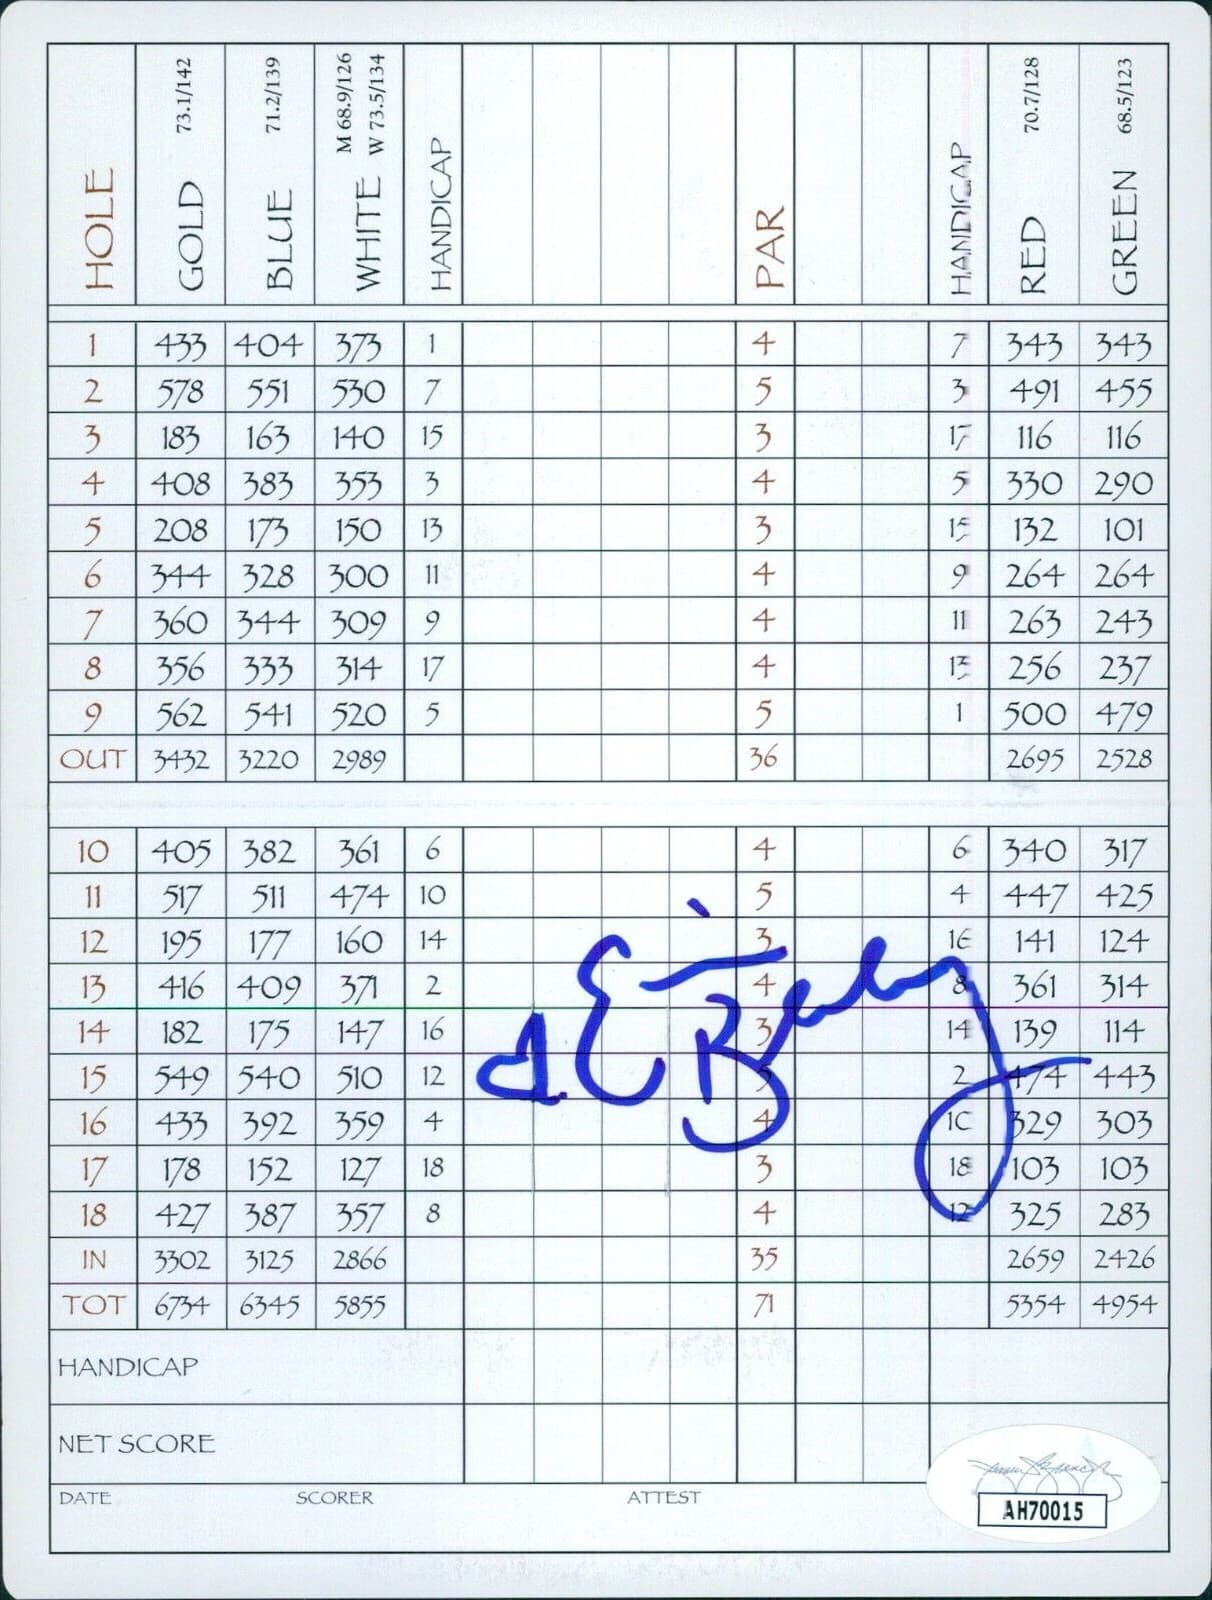 HOLE GOLD 73.1/142 BLUE 71.2/139 WHITE M 68.9/126 W 73.5/134 HANDICAP PAR HANDICAP RED 70.7/128 GREEN 68.5/123
1 433 404 373 1 4 7 343 343
2 578 551 530 7 5 3 491 455
3 183 163 140 15 3 17 116 116
4 408 383 353 3 4 5 330 290
5 208 173 150 13 3 15 132 101
6 344 328 300 11 4 9 264 264
7 360 344 309 9 4 11 263 243
8 356 333 314 17 4 13 256 237
9 562 541 520 5 5 1 500 479
OUT 3432 3220 2989 36 2695 2528
10 405 382 361 6 4 6 340 317
11 517 511 474 10 5 4 447 425
12 195 177 160 14 3 16 141 124
13 416 409 371 2 4 8 361 314
14 182 175 147 16 3 14 139 114
15 549 540 510 12 5 2 474 443
16 433 392 359 4 4 10 329 303
17 178 152 127 18 3 18 103 103
18 427 387 357 8 4 12 325 283
IN 3302 3125 2866 35 2659 2426
TOT 6734 6345 5855 71 5354 4954
HANDICAP
NET SCORE
DATE SCORER ATTEST
AH70015